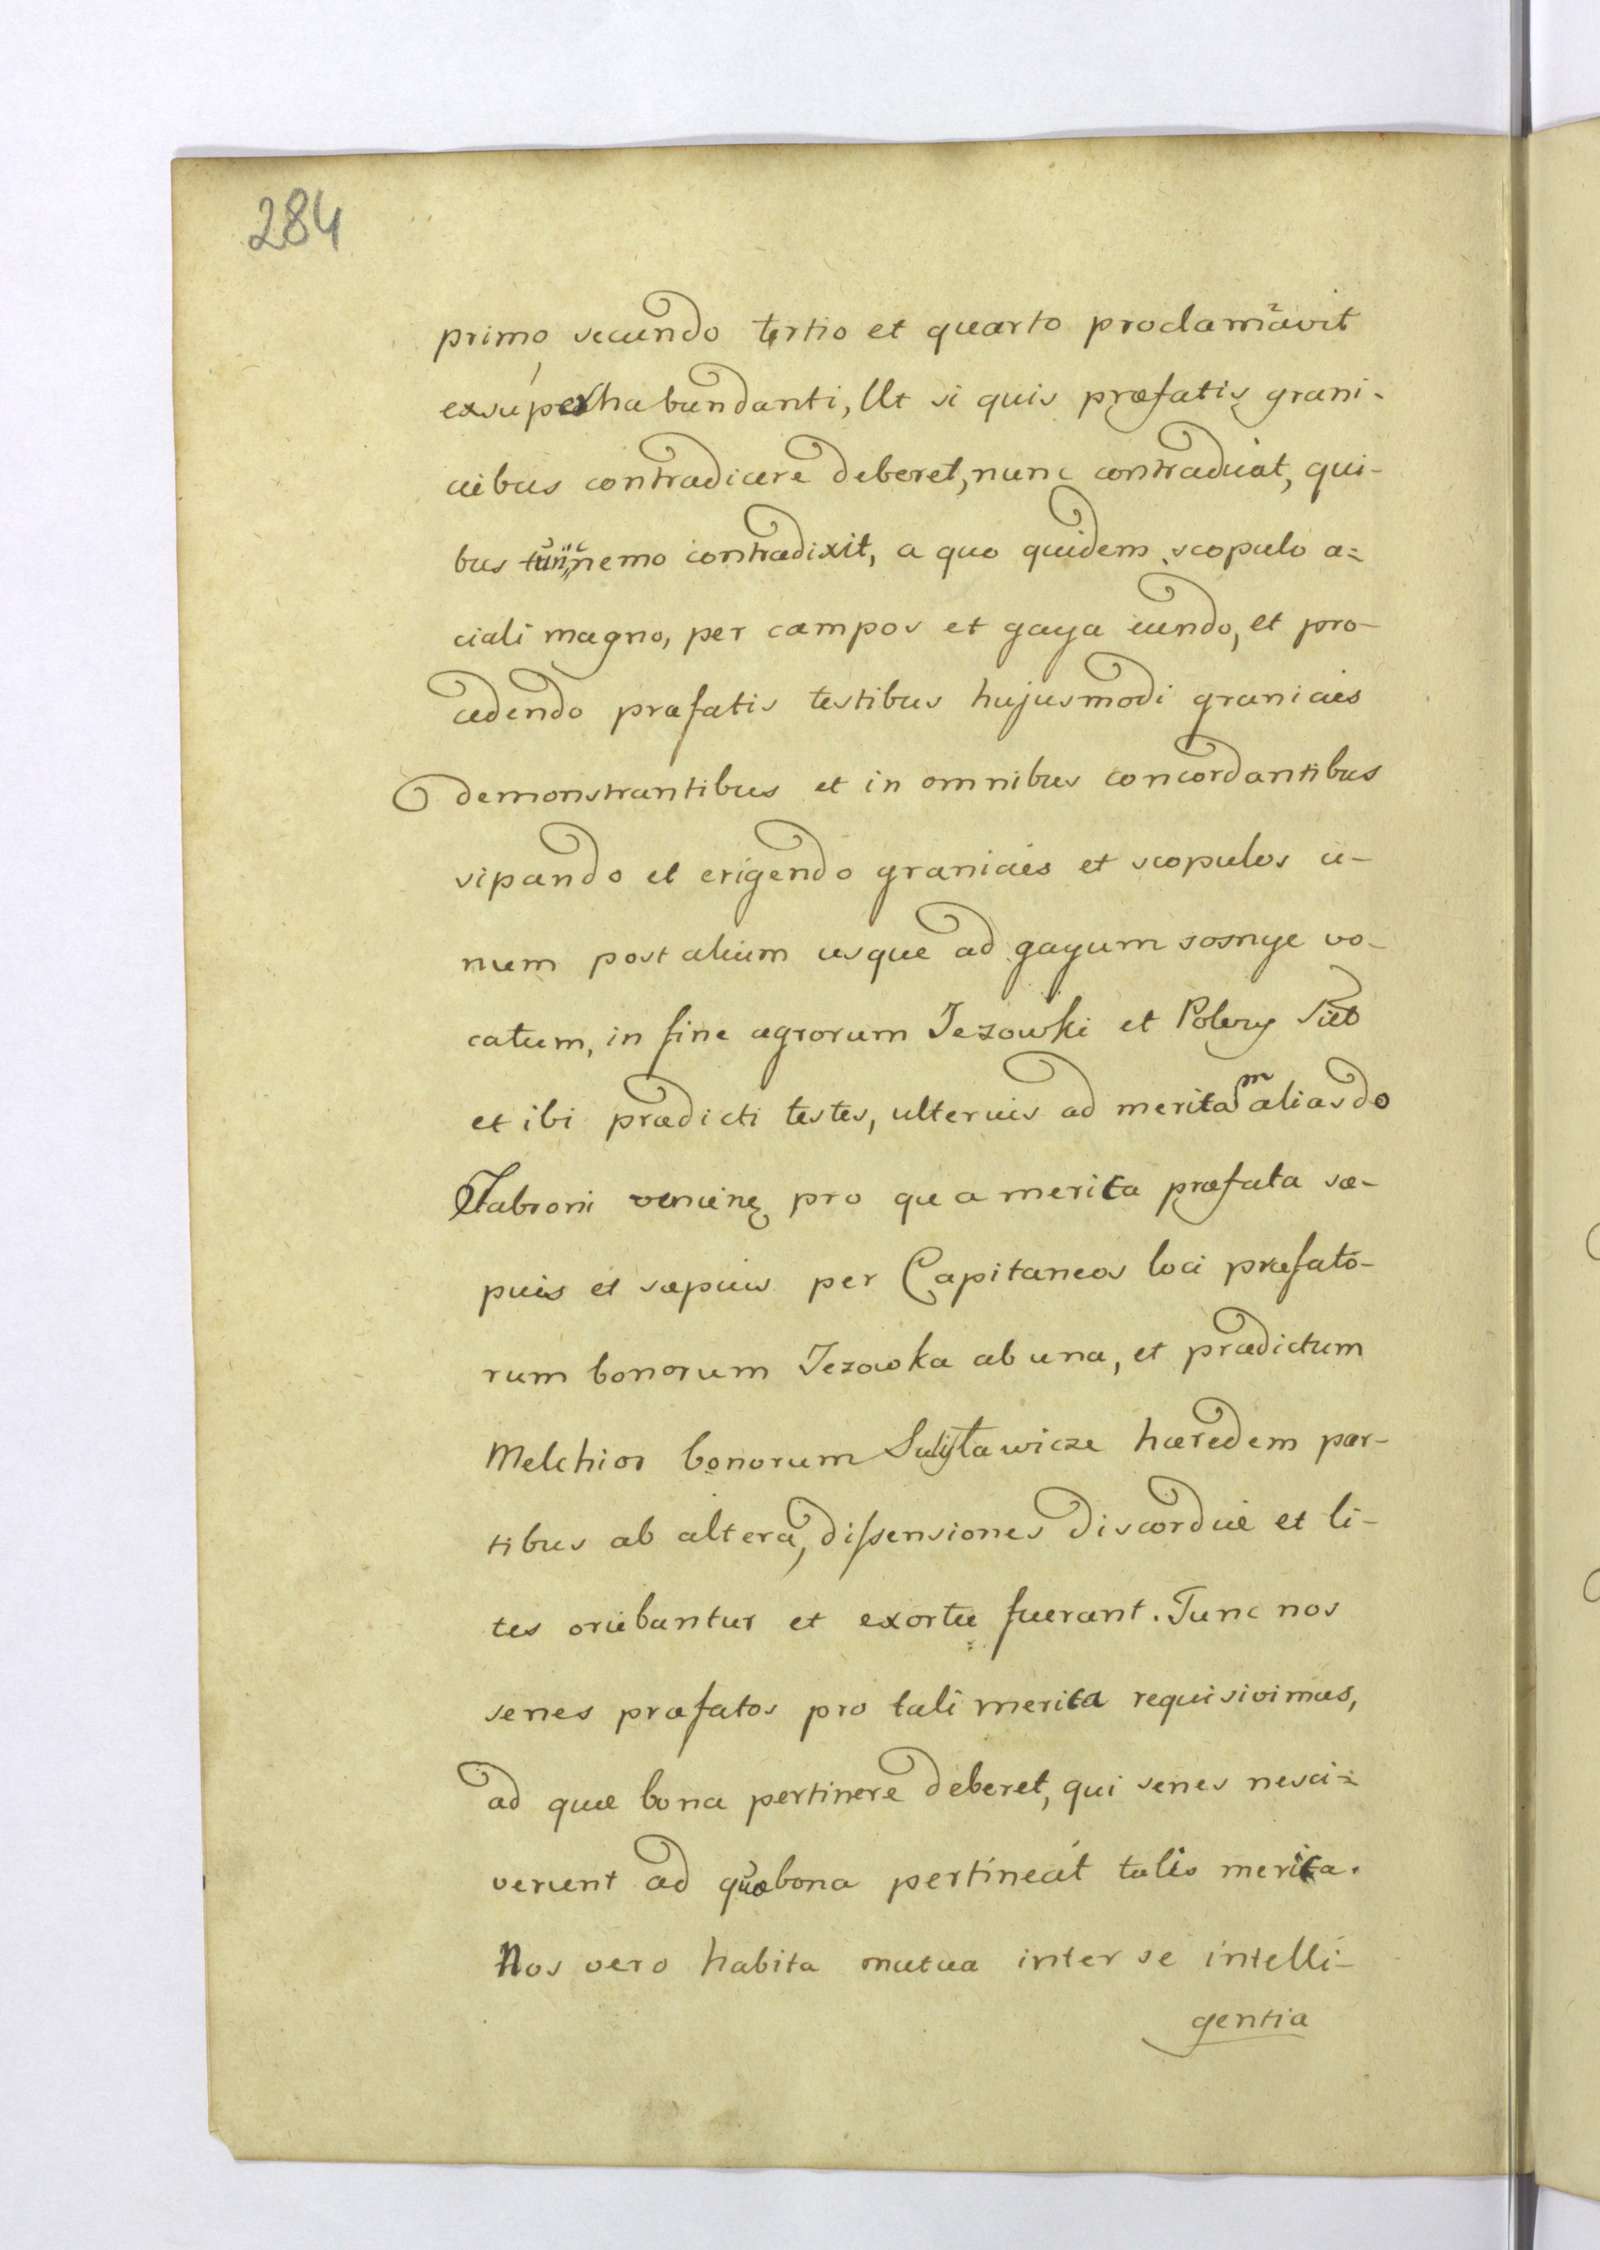 284
primo secundo tertio et quarto proclamavit
exsuperhabundanti, Ut si quis præfatis grani-
ciebus contradicere deberet, nunc contradicat, qui-
bus tunc nemo contradixit, a quo quidem scopulo a=
ciali magno, per campos et gaya eundo, et pro-
cedendo præfatis testibus hujusmodi granicies
demonstrantibus et in omnibus concordantibus
sipando et erigendo granicies et scopulos u-
num post alium usque ad gayum sosnye vo-
catum, in fine agrorum Jezowki et Polery
et ibi prædicti testes, ulterius ad meritam alias do
Jabroni pro qua merica præfata sæ-
pius et sæpius per Capitaneos loci præfato-
rum bonorum Jezowka ab una, et prædictum
Melchior bonorum Sulisławicze hæredem par-
tibus ab altera, dissensiones discordiæ et li-
tes oriebantur et exortæ fuerant. Tunc nos
senes præfatos pro tali merica requisivimus,
ad quæ bona pertinere deberet, qui senes nesci=
verunt ad quæ bona pertineat talis merica.
Nos vero habita mutua inter se intelli-
gentia